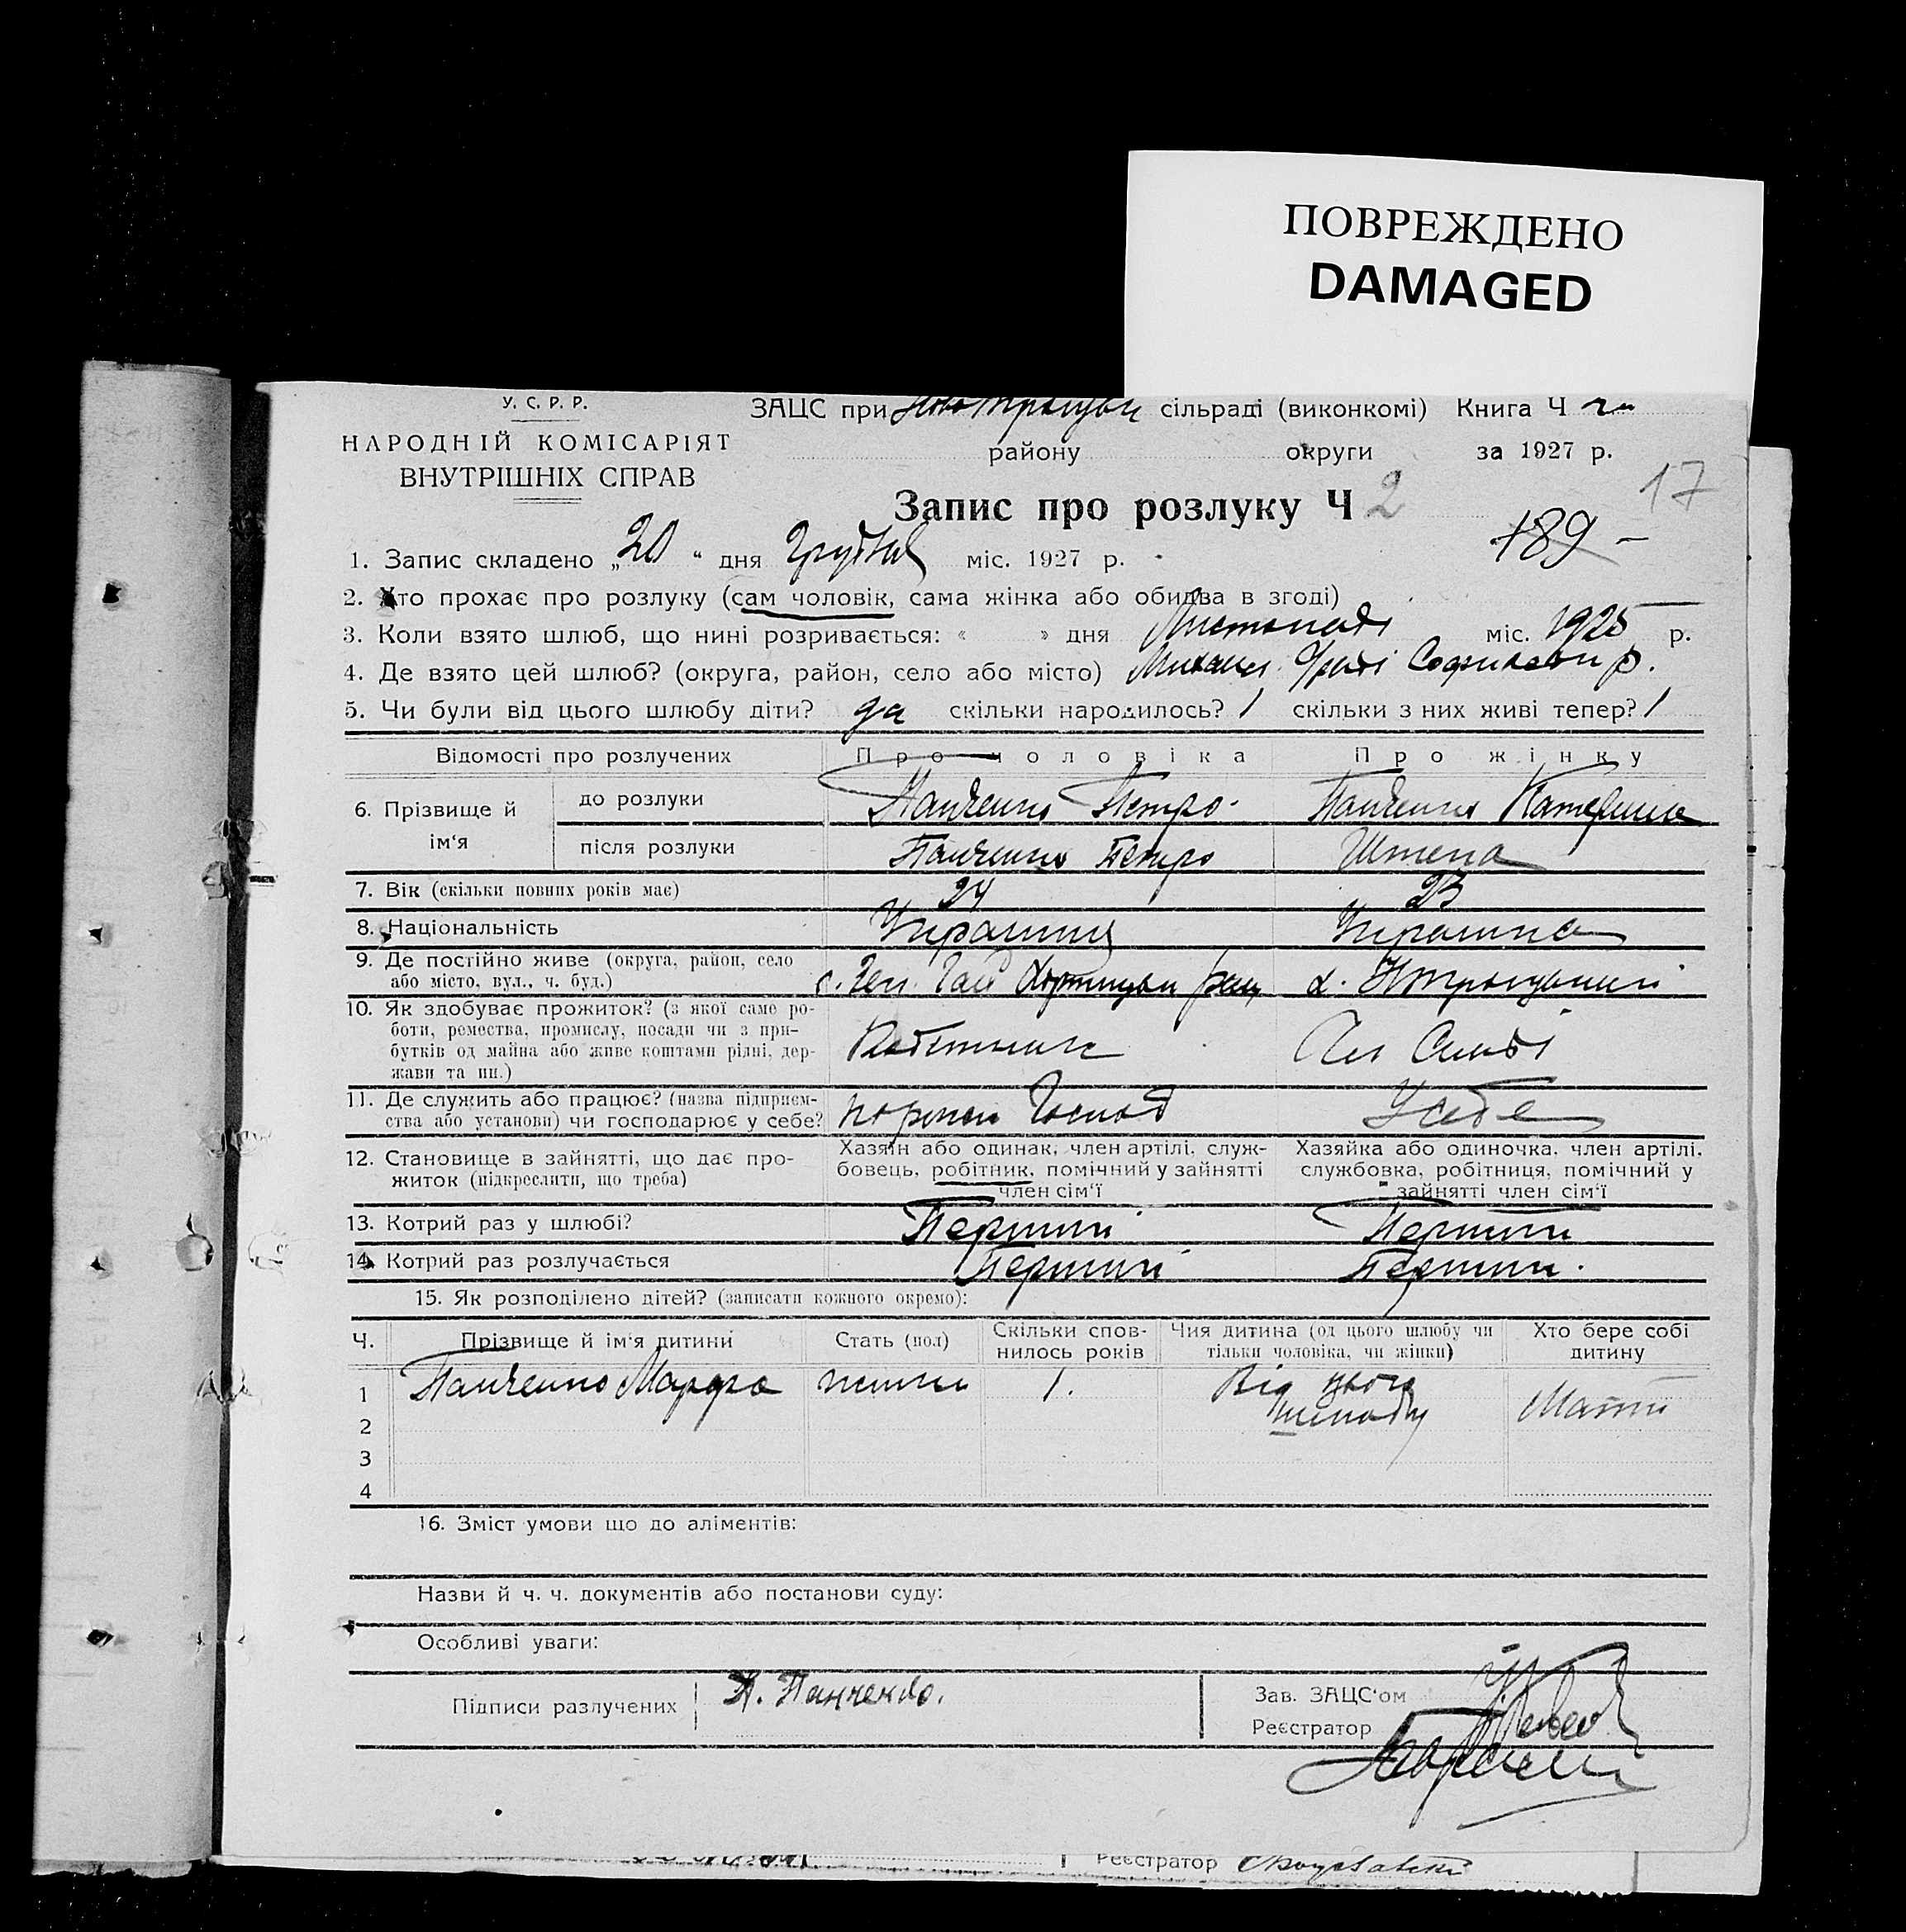 ПОВРЕЖДЕНО
DAMAGED
У. С. Р. Р.
НАРОДНІЙ КОМІСАРІЯТ
ВНУТРІШНІХ СПРАВ
ЗАЦС при сільраді (виконкомі) Книга Ч
району округи за 1927 р.
17
Запис про розлуку Ч 2
189 –
1. Запис складено „20“ дня Грудня міс. 1927 р.
2. Хто прохає про розлуку (сам чоловік, сама жінка або обидва в згоді)
3. Коли взято шлюб, що нині розривається: « » дня Листопаді міс. 1925 р.
4. Де взято цей шлюб? (округа, район, село або місто)
5. Чи були від цього шлюбу діти? да скільки народилось? 1 скільки з них живі тепер? 1
Відомості про розлучених Про чоловіка Про жінку
6. Прізвище й ім'я
до розлуки Панченко Петро. Панченко Катерина
після розлуки Панченко Петро Штепа
7. Вік (скільки повних років має) 24 23
8. Національність
9. Де постійно живе (округа, район, село
або місто, вул., ч. буд.)
10. Як здобуває прожиток? (з якої саме ро-
боти, ремества, промислу, посади чи з при-
бутків од майна або живе коштами рідні, дер-
жави та ин.)
11. Де служить або працює? (назва підприєм-
ства або установи) чи господарює у себе? У себе
12. Становище в зайнятті, що дає про-
житок (підкреслити, що треба)
Хазяїн або одинак, член артілі, служ-
бовець, робітник, помічний у зайнятті
член сім'ї
Хазяйка або одиночка, член артілі,
службовка, робітниця, помічний у
зайнятті член сім'ї
13. Котрий раз у шлюбі? Перший Перший
14. Котрий раз розлучається Перший Перший.
15. Як розподілено дітей? (записати кожного окремо):
Ч. Прізвище й ім'я дитини Стать (пол) Скільки спов-
нилось років Чия дитина (од цього шлюбу чи
тільки чоловіка, чи жінки) Хто бере собі
дитину
1 Панченко Марфа 1. Від цього
шлюбу Мати
2
3
4
16. Зміст умови що до аліментів:
Назви й ч. ч. документів або постанови суду:
Особливі уваги:
Підписи разлучених П. Панченко.
Зав. ЗАЦС'ом
Реєстратор
Реєстратор